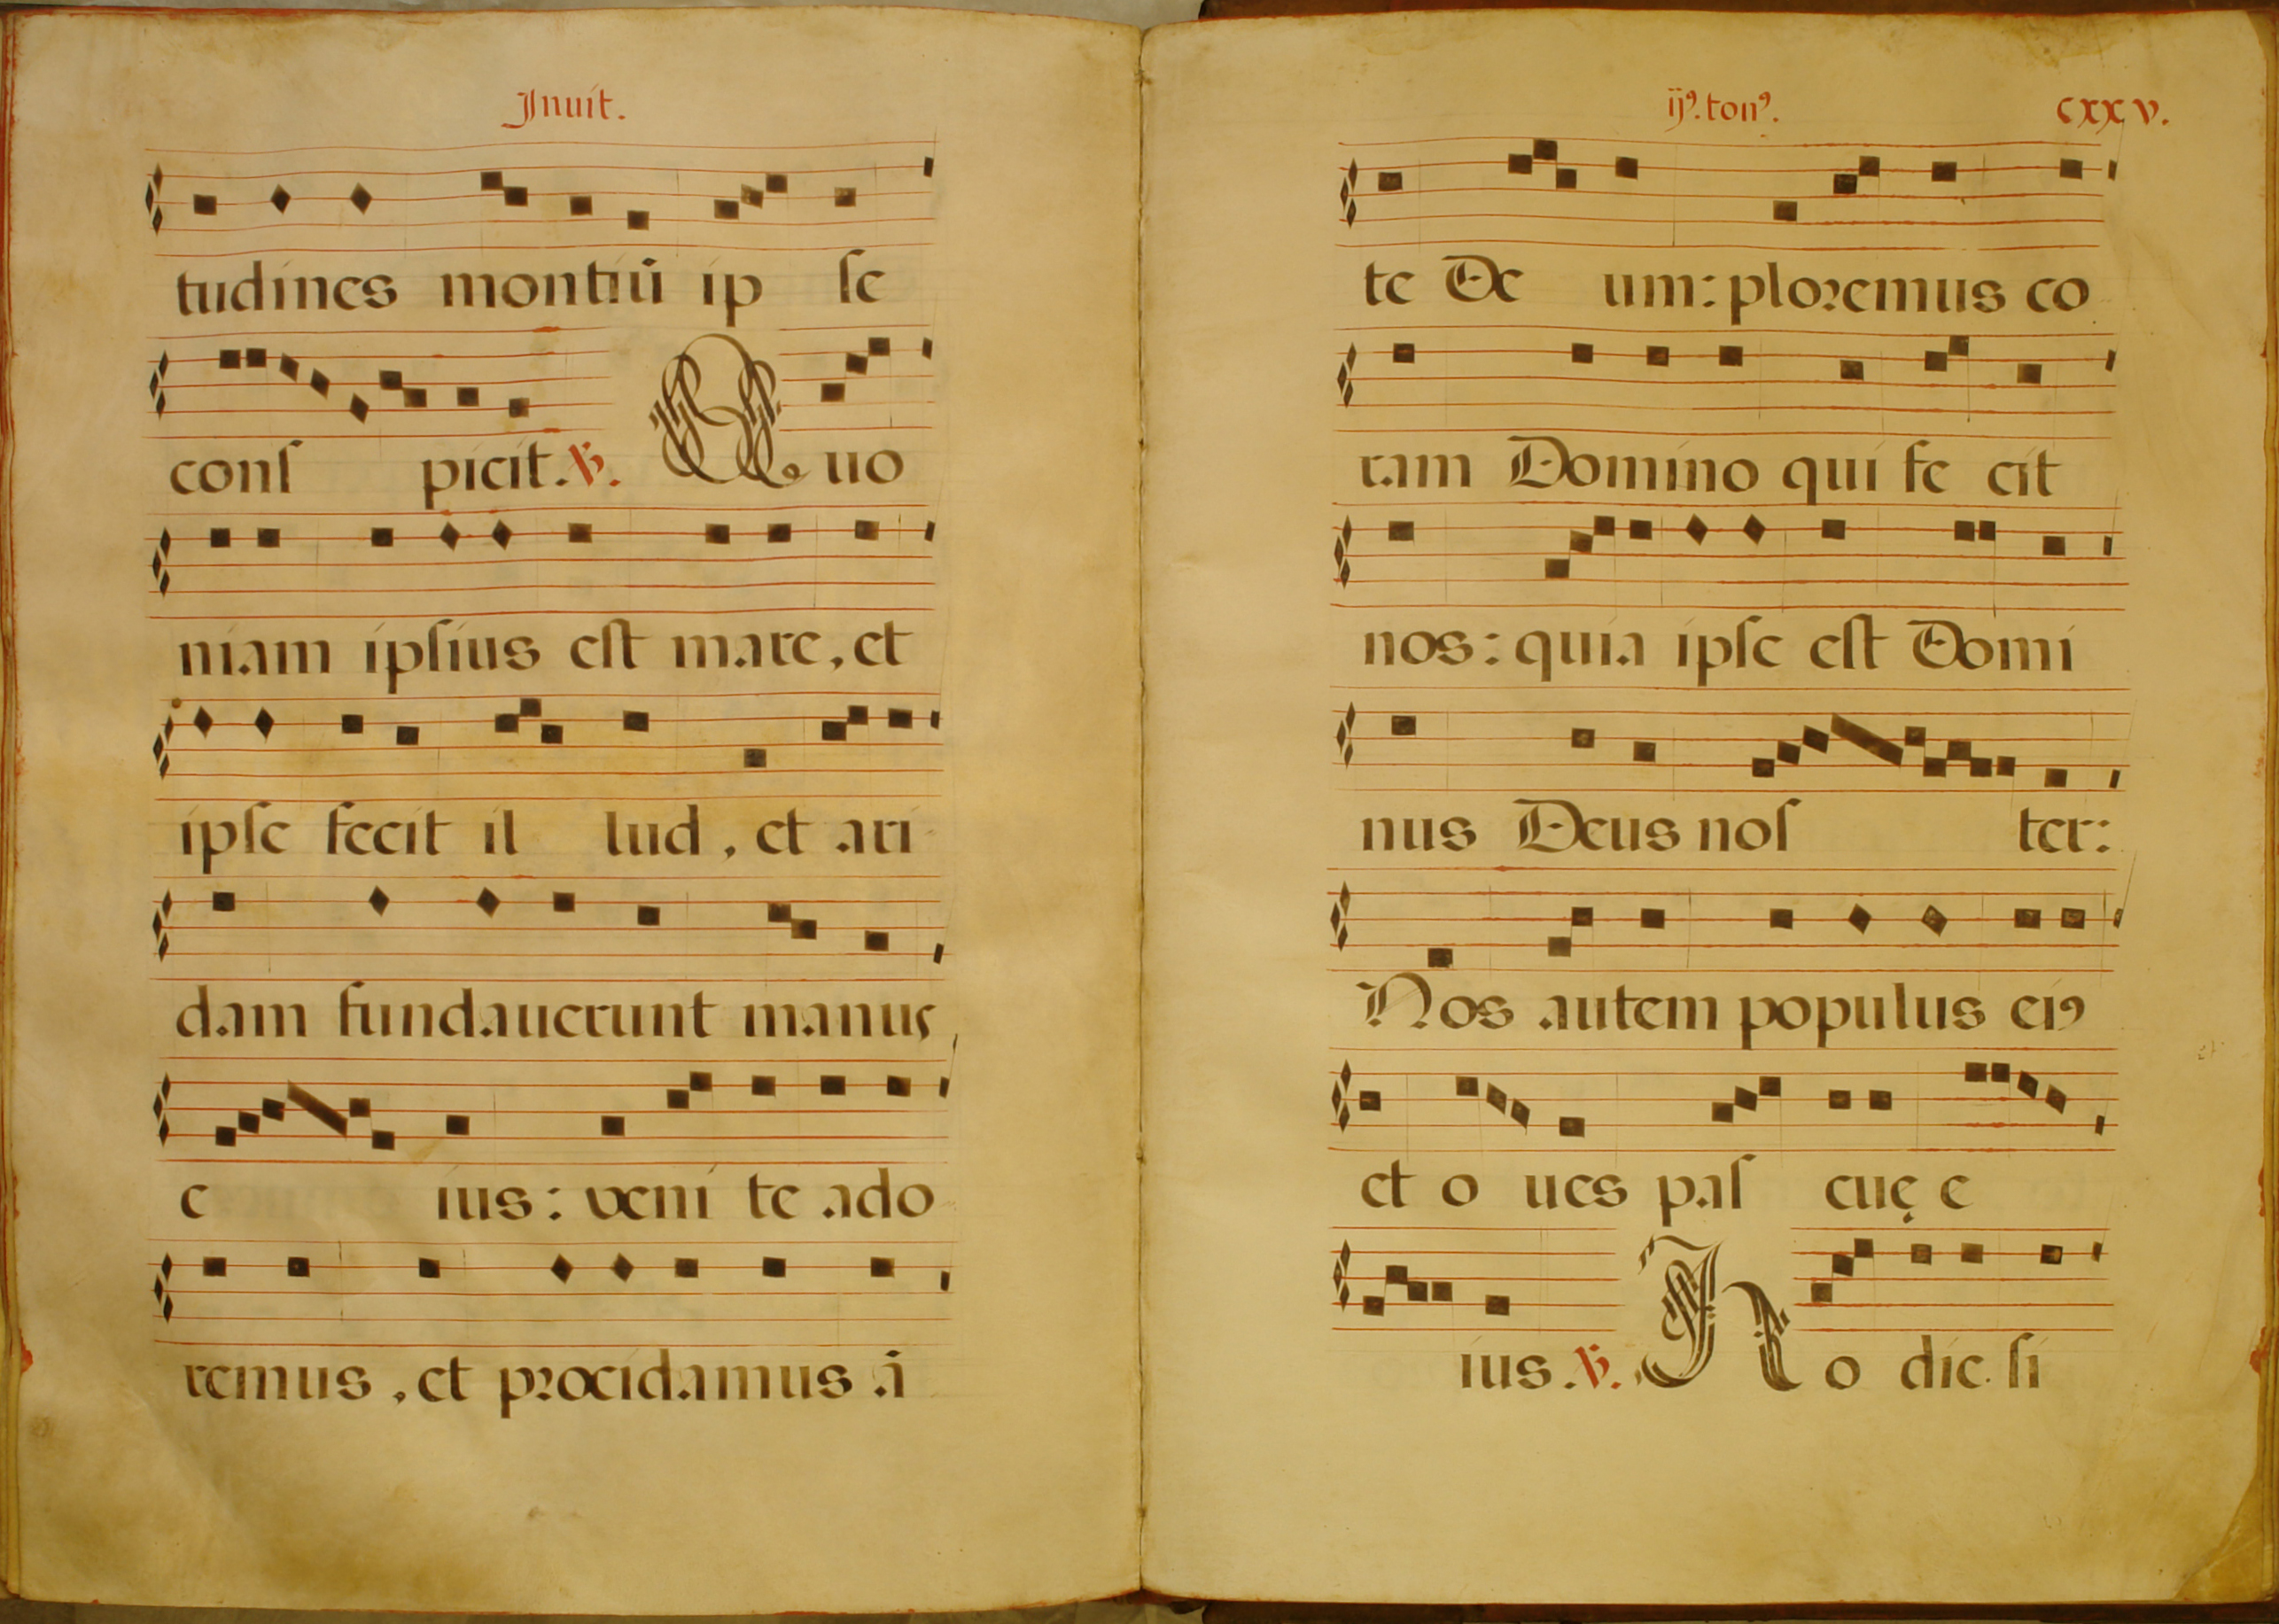 Jnuit.
tudines montiū ip ſe
conſ picit. ℣. Q uo
niam ipſius eſt mare, et
ipſe fecit il lud, et ari
dam fundauerunt manus
e ius: veni te ado
remus, et procidamus ā
ijꝯ. tonꝯ. cxxv.
te De um: ploremus co
ram Domino qui fe cit
nos: quia ipſe eſt Domi
nus Deus noſ ter:
Nos autem populus eiꝯ
et o ues paſ cuę e
ius. ℣. H o die. ſi